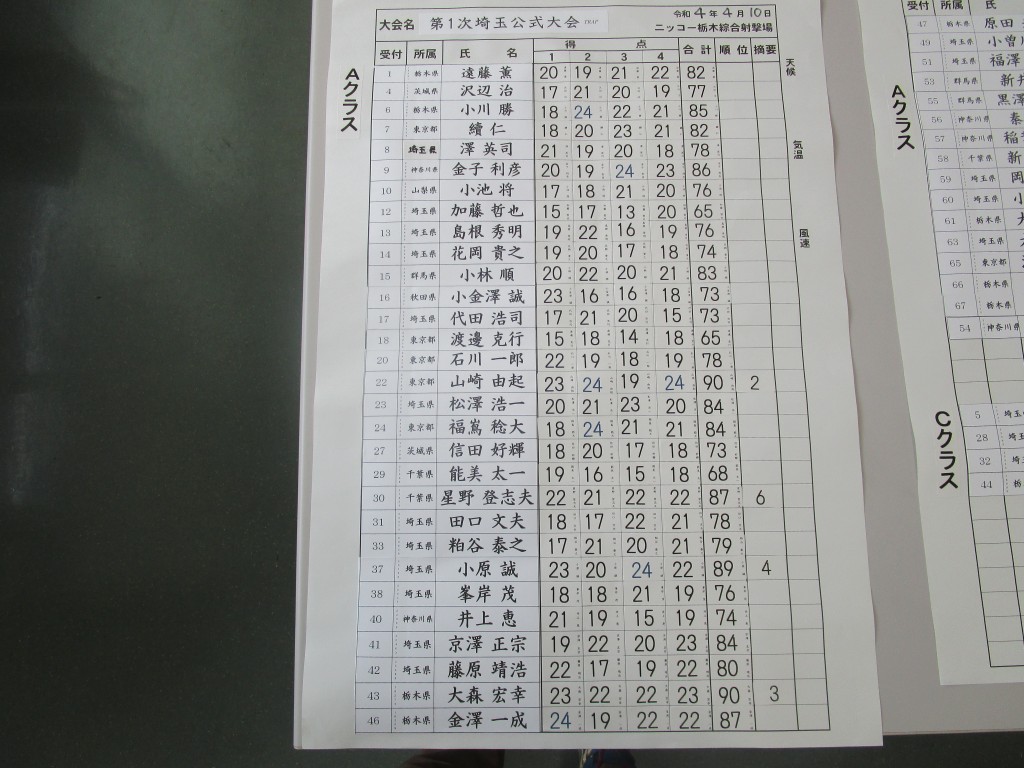 大会名 第1次埼玉公式大会 TRAP 令和 4 年 4 月 10 日
ニッコー栃木綜合射撃場
受付 所属 氏 名 得 点 合 計 順 位 摘要
1 2 3 4
Aクラス
天候
気温
風速
1 栃木県 遠藤 薫 20 19 21 22 82
4 茨城県 沢辺 治 17 21 20 19 77
6 栃木県 小川 勝 18 24 22 21 85
7 東京都 續 仁 18 20 23 21 82
8 埼玉県 澤 英司 21 19 20 18 78
9 神奈川県 金子 利彦 20 19 24 23 86
10 山梨県 小池 将 17 18 21 20 76
12 埼玉県 加藤 哲也 15 17 13 20 65
13 埼玉県 島根 秀明 19 22 16 19 76
14 埼玉県 花岡 貴之 19 20 17 18 74
15 群馬県 小林 順 20 22 20 21 83
16 秋田県 小金澤 誠 23 16 16 18 73
17 埼玉県 代田 浩司 17 21 20 15 73
18 東京都 渡邊 克行 15 18 14 18 65
20 東京都 石川 一郎 22 19 18 19 78
22 東京都 山崎 由起 23 24 19 24 90 2
23 埼玉県 松澤 浩一 20 21 23 20 84
24 東京都 福嶌 稔大 18 24 21 21 84
27 茨城県 信田 好輝 18 20 17 18 73
29 千葉県 能美 太一 19 16 15 18 68
30 千葉県 星野 登志夫 22 21 22 22 87 6
31 埼玉県 田口 文夫 18 17 22 21 78
33 埼玉県 粕谷 泰之 17 21 20 21 79
37 埼玉県 小原 誠 23 20 24 22 89 4
38 埼玉県 峯岸 茂 18 18 21 19 76
40 神奈川県 井上 恵 21 19 15 19 74
41 埼玉県 京澤 正宗 19 22 20 23 84
42 埼玉県 藤原 靖浩 22 17 19 22 80
43 栃木県 大森 宏幸 23 22 22 23 90 3
46 栃木県 金澤 一成 24 19 22 22 87
受付 所属 氏
Aクラス
47 栃木県 原田
49 埼玉県 小曽
51 埼玉県 福澤
53 群馬県 新
55 群馬県 黒澤
56 神奈川県
57 神奈川県 稲
58 千葉県 新
59 埼玉県 岡
60 埼玉県 小
61 栃木県
63 埼玉県
65 東京都
66 栃木県
67 栃木県
54 神奈川県
Cクラス
5 埼玉
28 埼玉
32 埼
44 栃